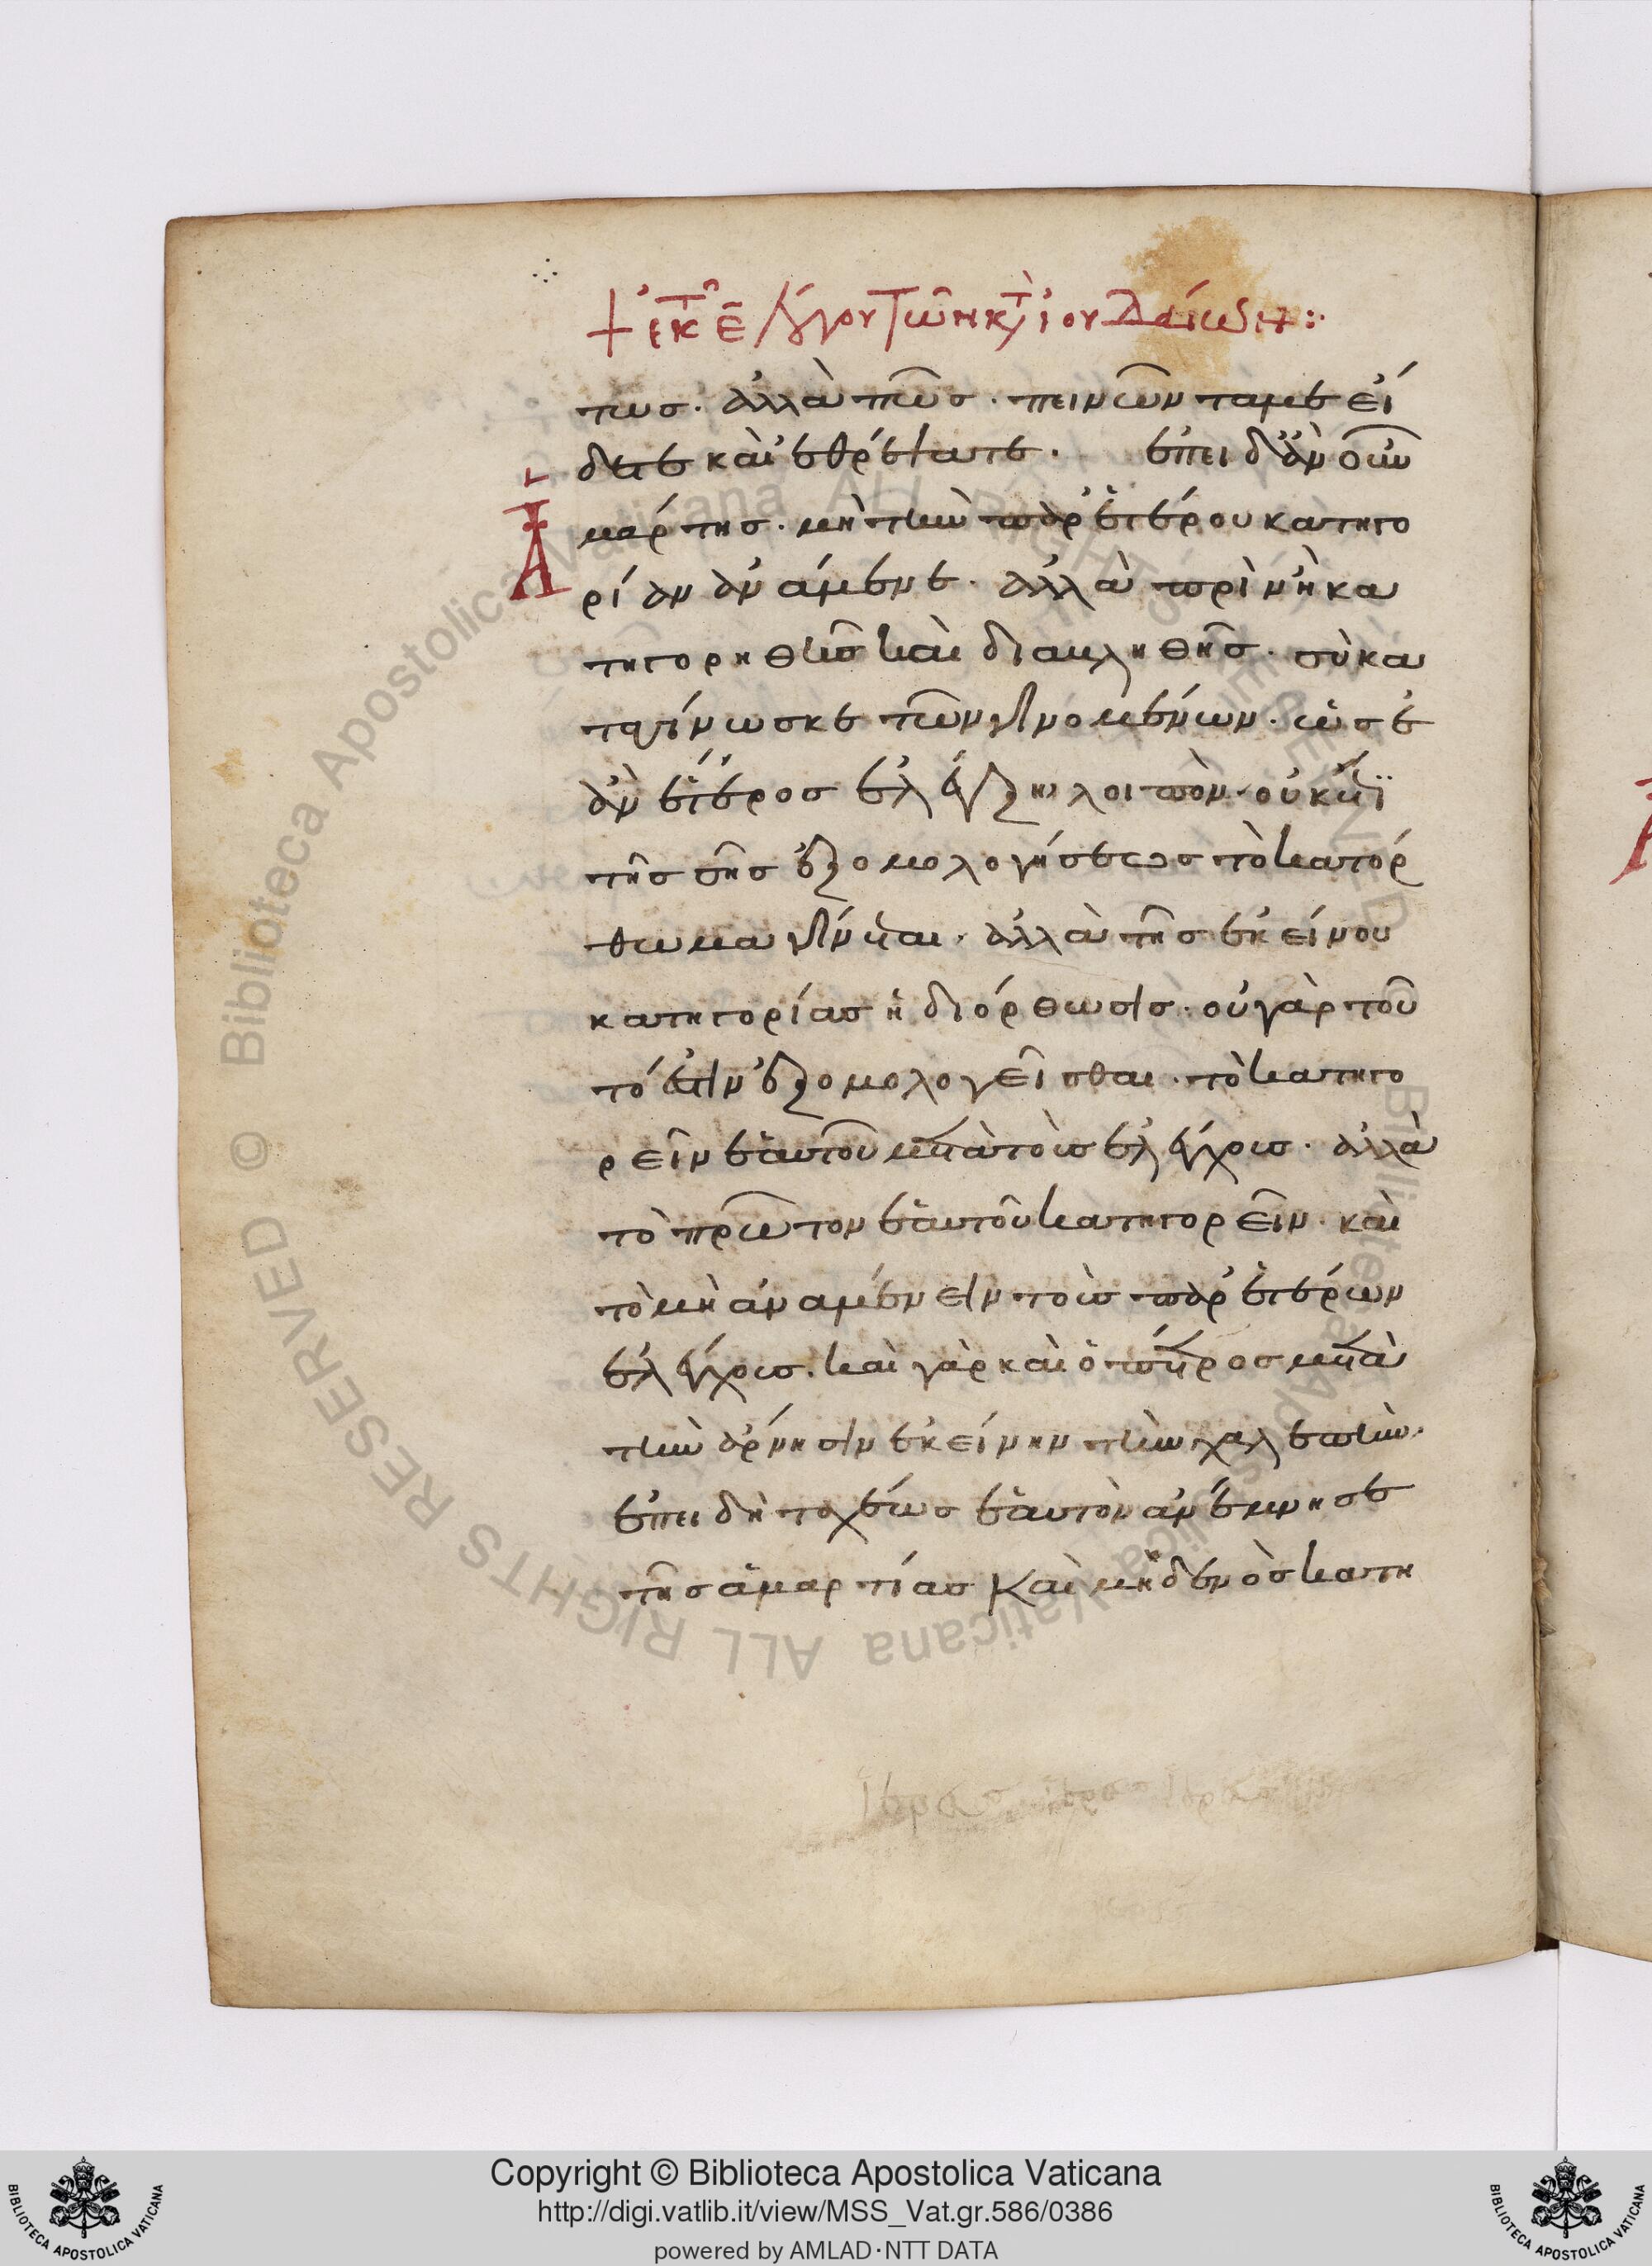 + ἐκ τοῦ ε λόγου τῶν κτ ἰουδαίων :·
πως. ἀλλὰ πῶς. πεινῶντά με εἴ
δετε καὶ ἐθρέψατε. ἐπειδὰν οὖν
Α
μάρτης. μὴ τὴν παρ' ἑτέρου κατηγο
ρίαν ἀνάμενε. ἀλλὰ πρὶν ἢ κα
τηγορηθῆς καὶ διακληθῆς. σὺ κα
ταγίνωσκε τῶν γινομένων. ὡς ἐ
ὰν ἕτερος ἐλέγξη λοιπὸν. οὐκέτι
τῆς σῆς ἐξομολογήσεως τὸ κατόρ
θωμα γίνεται. ἀλλὰ τῆς ἐκείνου
κατηγορίας ἡ διόρθωσις. οὐ γὰρ τοῦ
τό ἐστιν ἐξομολογεῖσθαι. τὸ κατηγο
ρεῖν ἑαυτοῦ μετὰ τοὺς ἐλέγχους. ἀλλὰ
τὸ πρῶτον ἑαυτοῦ κατηγορεῖν. καὶ
τὸ μὴ ἀναμένειν τοὺς παρ' ἑτέρων
ἐλέγχους. καὶ γὰρ καὶ ὁ πέτρος μετὰ
τὴν ἄρνησιν ἐκείνην τὴν χαλεπὴν.
ἐπειδὴ ταχέως ἑαυτὸν ἀνέμνησε
τῆς ἁμαρτίας καὶ μηδενὸς κατη
Copyright © Biblioteca Apostolica Vaticana
http://digi.vatlib.it/view/MSS_Vat.gr.586/0386
powered by AMLAD·NTT DATA
BIBLIOTECA APOSTOLICA VATICANA
BIBLIOTECA APOSTOLICA VATICANA
© Biblioteca Apostolica Vaticana ALL RIGHTS RESERVED